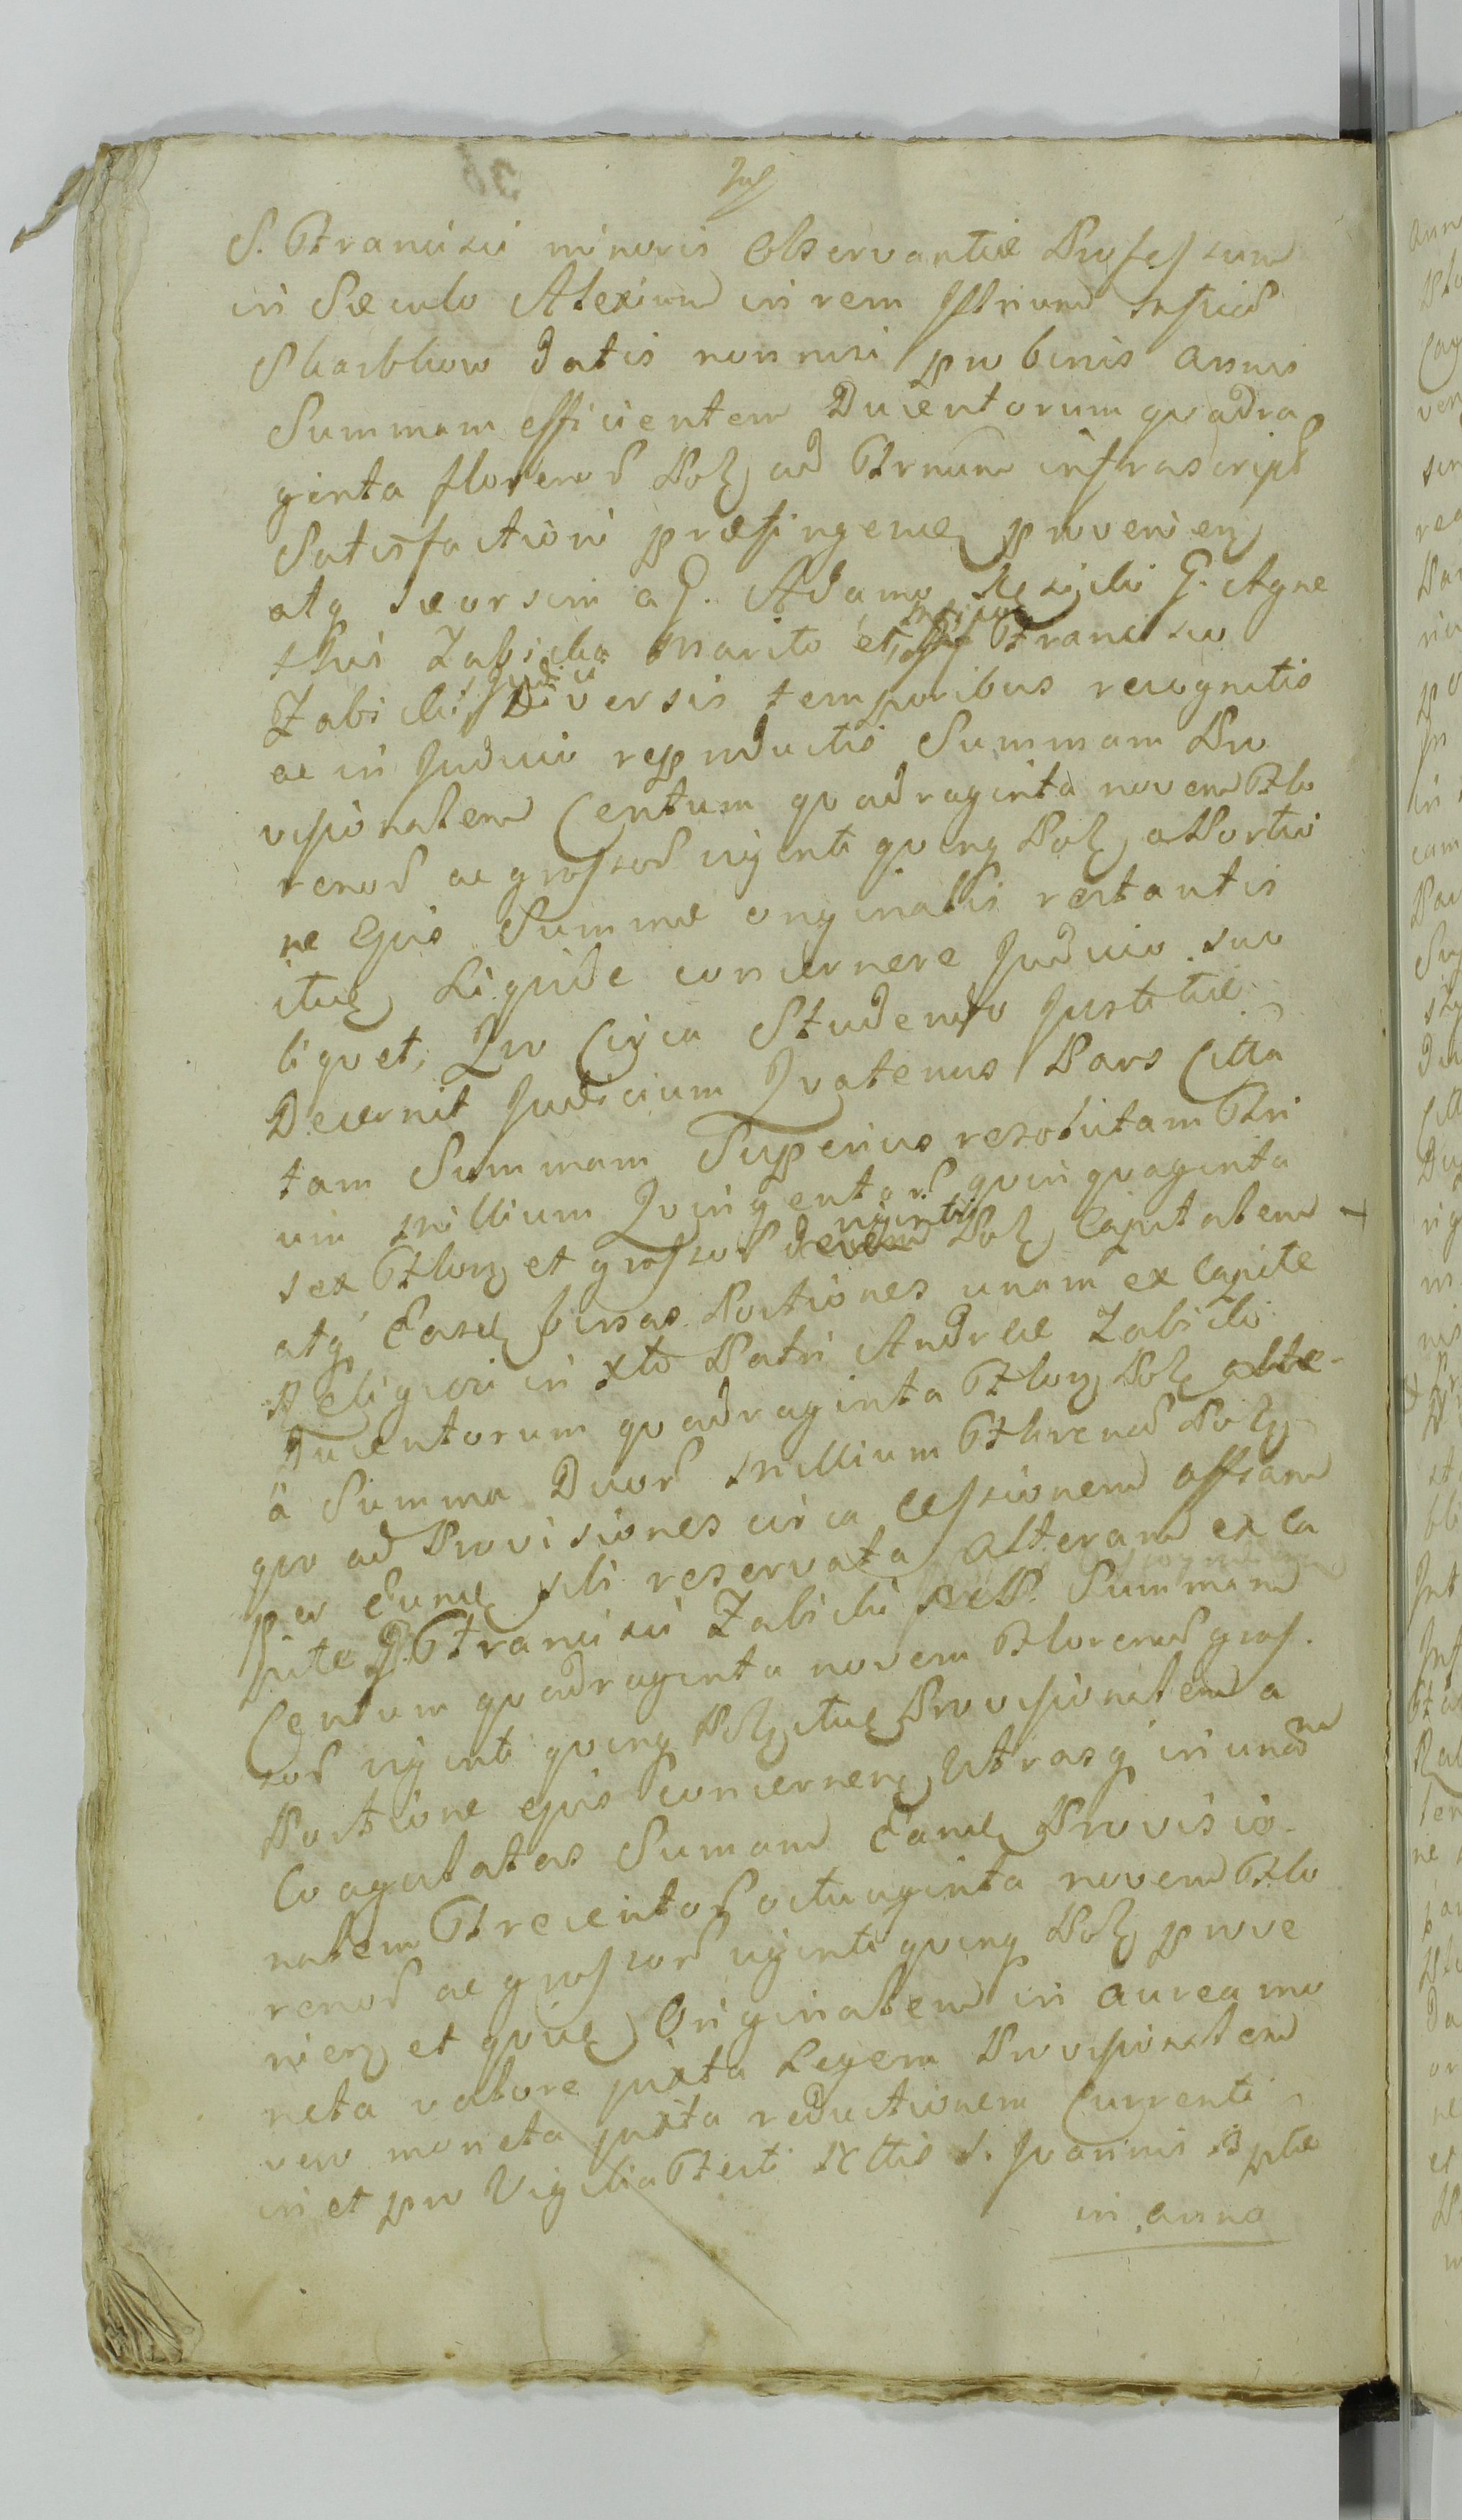 S. Francisci minoris Observantiæ Professum
in Sæculo Alexium in rem
datis non nisi pro binis annis
Summam efficientem Ducentorum quadra
ginta florenor Pol ad Trnum infrascript
Satisfactioni præfingen provenien
atq seorsim a G. Adamo G. Agne
this Zabicka marito et Francisco
Zabicki Diversis temporibus recognitis
ac in Judicio reproductis Summam Pro
visionalem Centum quadraginta novem Flo
renor ac grossor viginti quinq Pol a Portio
ne Ejus Summæ originalis restantis
itué Liquide concernere Judicio suo
liquet, Quo Circa Studendo Justitiæ
Decernit Judicium Quatenus Pars Citta
tam Summam Superius resolutam Tri
um millium Quingentor quinquaginta
sex Flor et grossor viginti Pol Capitalem
atq Easé binas Portiones unam ex Capite
Religiosi in Xto Patri Andreæ Zabicki
Ducentorum quadraginta Flor Pol
a Summa Duor millium Florenor Pol
quo ad Provisiones circa Cessionem
per Eunde sibi reservata alteram ex Ca
pite G. Francisci Zabicki Summam
Centum quadraginta novem Florenor gros
sor viginti quinq Pol itué Provisionalem a
Portione ejus concernen Utrasq in unam
Coagulatas Sumam Eandé Provisio
nalem Trecentor octuaginta novem Flo
renor ac grossor viginti quinq Pol prove
nien et quidé Originalem in aurea mo
neta valore juxta Legem Provisionalem
vero moneta juxta reductionem Currenti
in et pro Vigilia Festi S. Joannis Bptæ
in anno